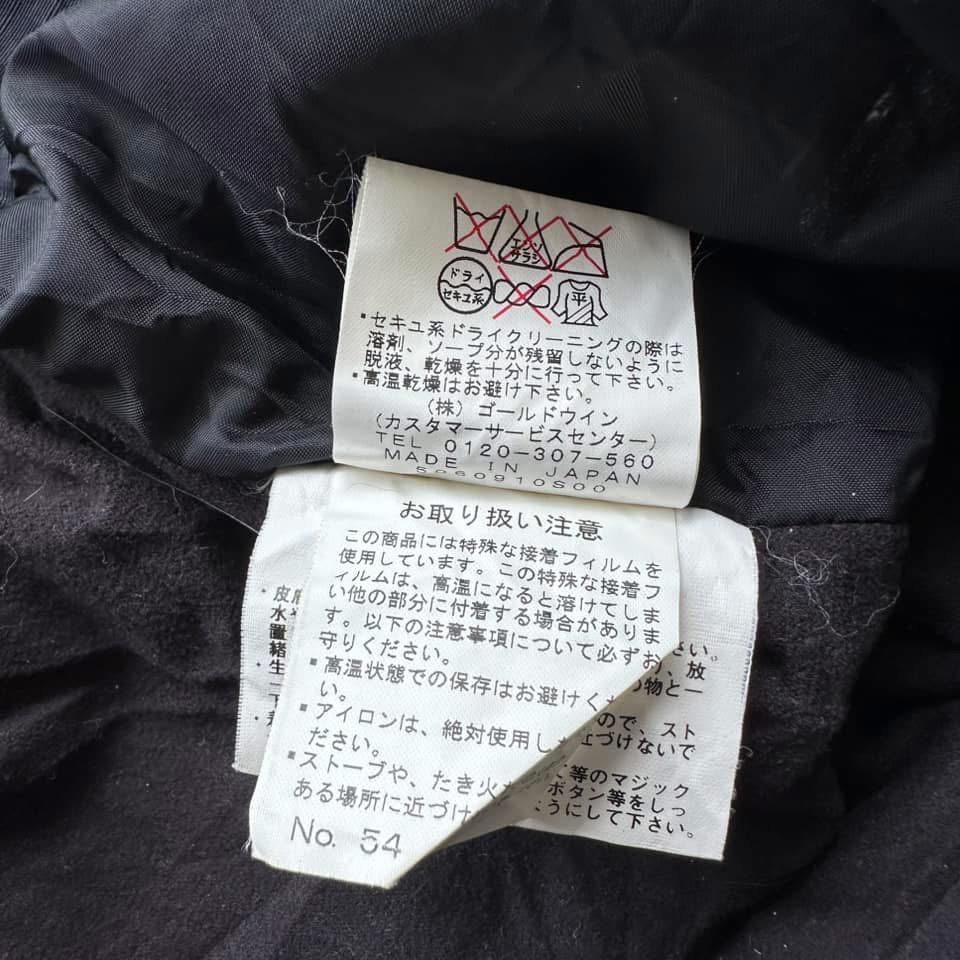 エンソ
サラシ
ドライ
セキユ系
平
・セキユ系ドライクリーニングの際は
溶剤、ソープ分が残留しないように
脱液、乾燥を十分に行って下さい。
・高温乾燥はお避け下さい。
(株)ゴールドウイン
(カスタマーサービスセンター)
TEL 0120-307-560
MADE IN JAPAN
5060910S00
お取り扱い注意
この商品には特殊な接着フィルムを
使用しています。この特殊な接着フ
ィルムは、高温になると溶けてしま
い他の部分に付着する場合がありま
す。以下の注意事項について必ずお
守りください。
・高温状態での保存はお避けくだ
い。
・アイロンは、絶対使用し
ださい。
・ストーブや、たき火
ある場所に近づけ
No. 54
さい。
、放
の物と一
ので、スト
近づけないで
等のマジック
ボタン等をしっ
うにして下さい。
皮
水
置
緒
生